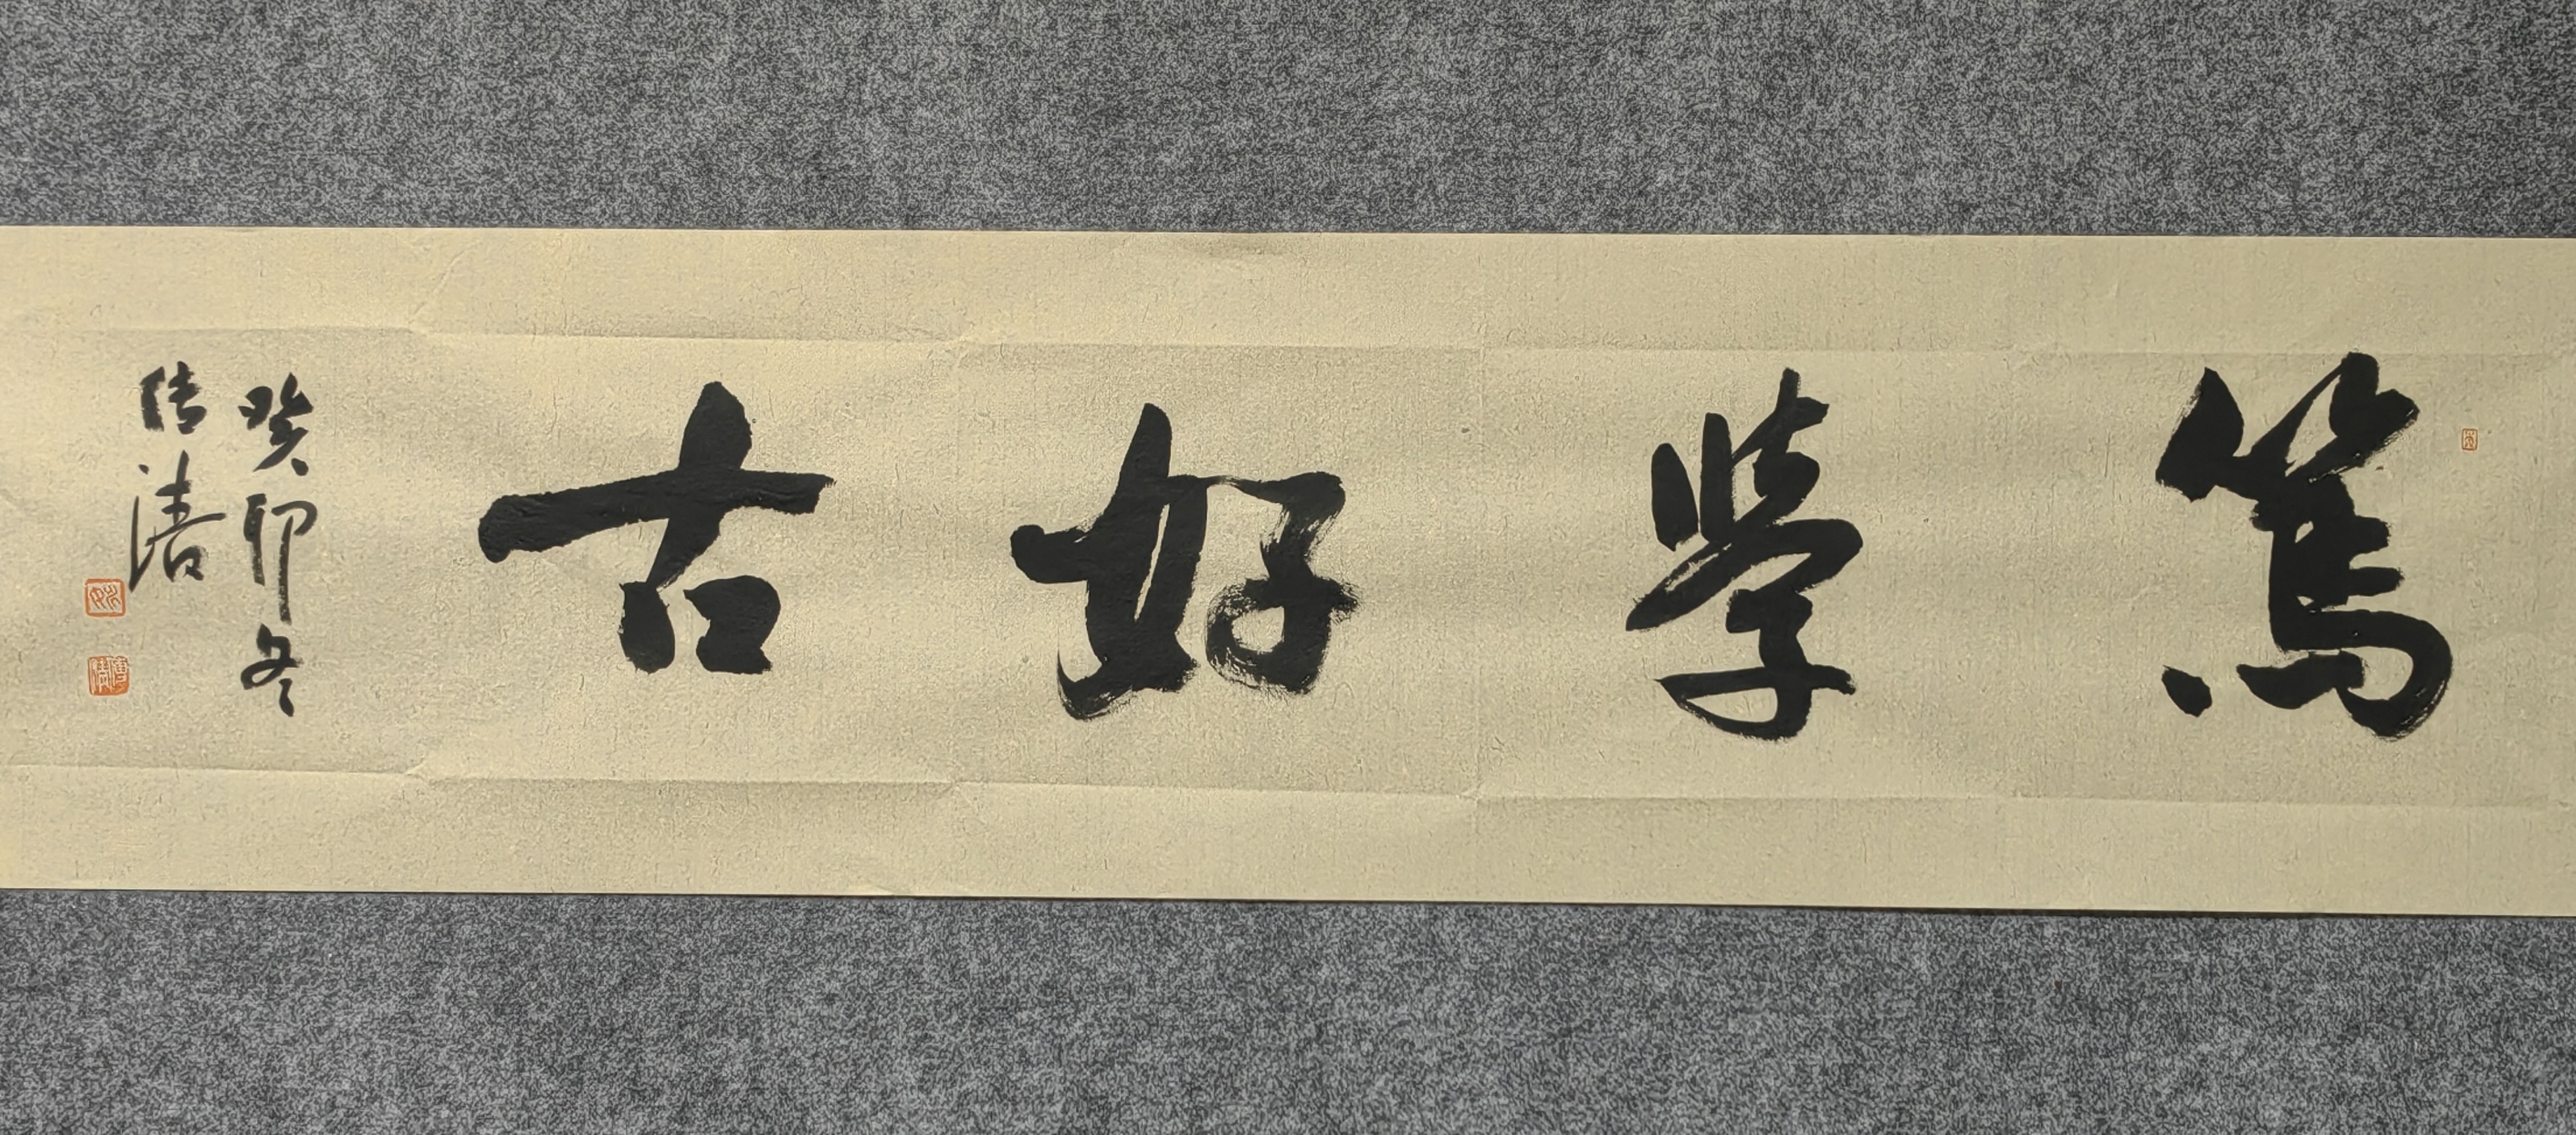 篤學好古
癸卯冬
传涛